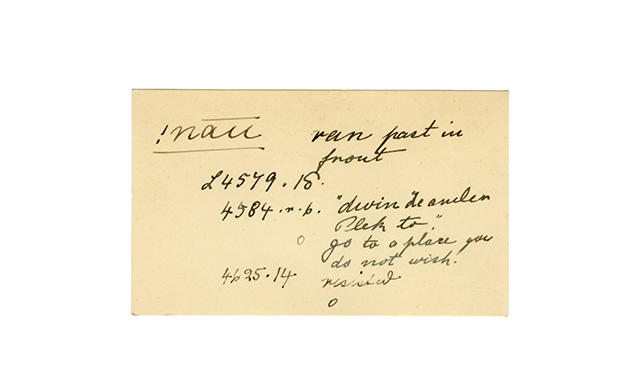 !nau ran past in
front
L4579.18.
4584.r.b. "dwin de anden
Plek to."
go to a place you
do not wish.
4625.14 resisted